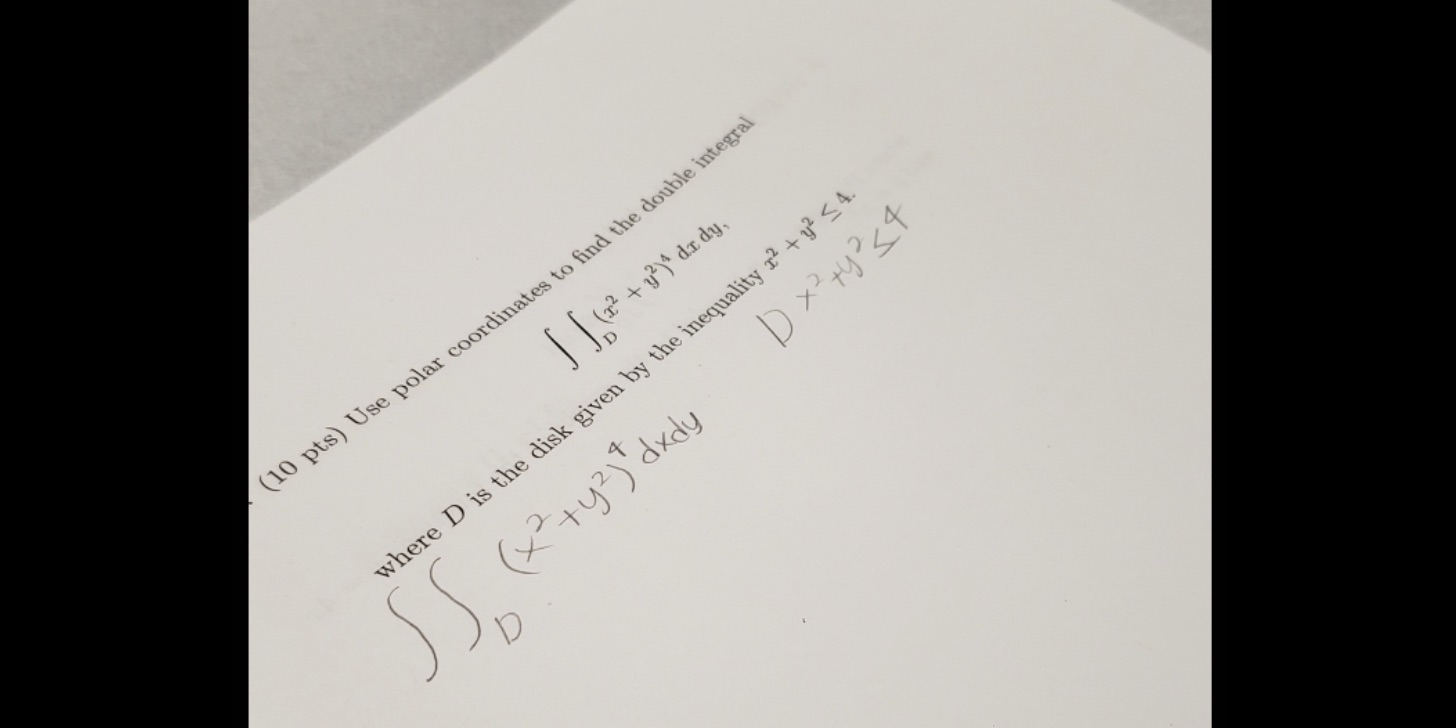 . (10 pts) Use polar coordinates to find the double integral
∫∫_D (x² + y²)⁴ dx dy,
where D is the disk given by the inequality x² + y² ≤ 4.
D x²+y² ≤ 4
∫∫_D (x²+y²)⁴ dxdy